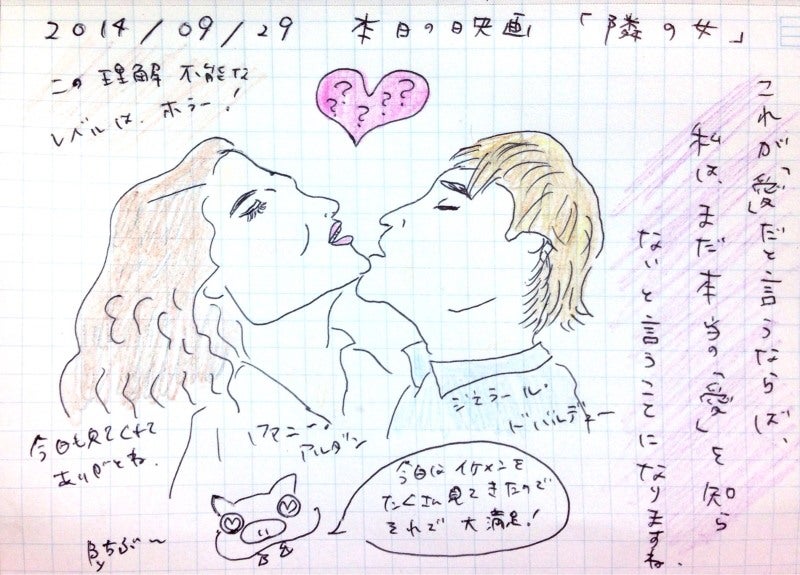 2014/09/29 本日の映画「隣の女」
この理解不能な
レベルは、ホラー！
? ? ? ?
これが「愛」だと言うならば、
私は、まだ本当の「愛」を知ら
ないと言うことになりますね。
ファニー・
アルダン
ジェラール・
ドパルデュー
今日も見てくれて
ありがとね。
今日はイケメンを
たくさん見てきたので
それで大満足！
By ちぶー